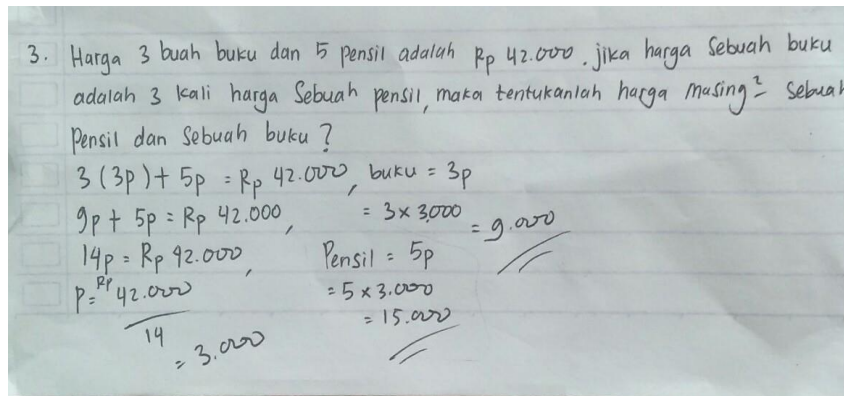 3. Harga 3 buah buku dan 5 pensil adalah Rp 42.000. jika harga sebuah buku
adalah 3 kali harga sebuah pensil, maka tentukanlah harga masing² sebuah
Pensil dan sebuah buku?
3(3p) + 5p = Rp 42.000, buku = 3p
9p + 5p = Rp 42.000, = 3 x 3.000 = 9.000
14p = Rp 42.000, Pensil = 5p
P = Rp 42.000 = 5 x 3.000
14 = 15.000
= 3.000